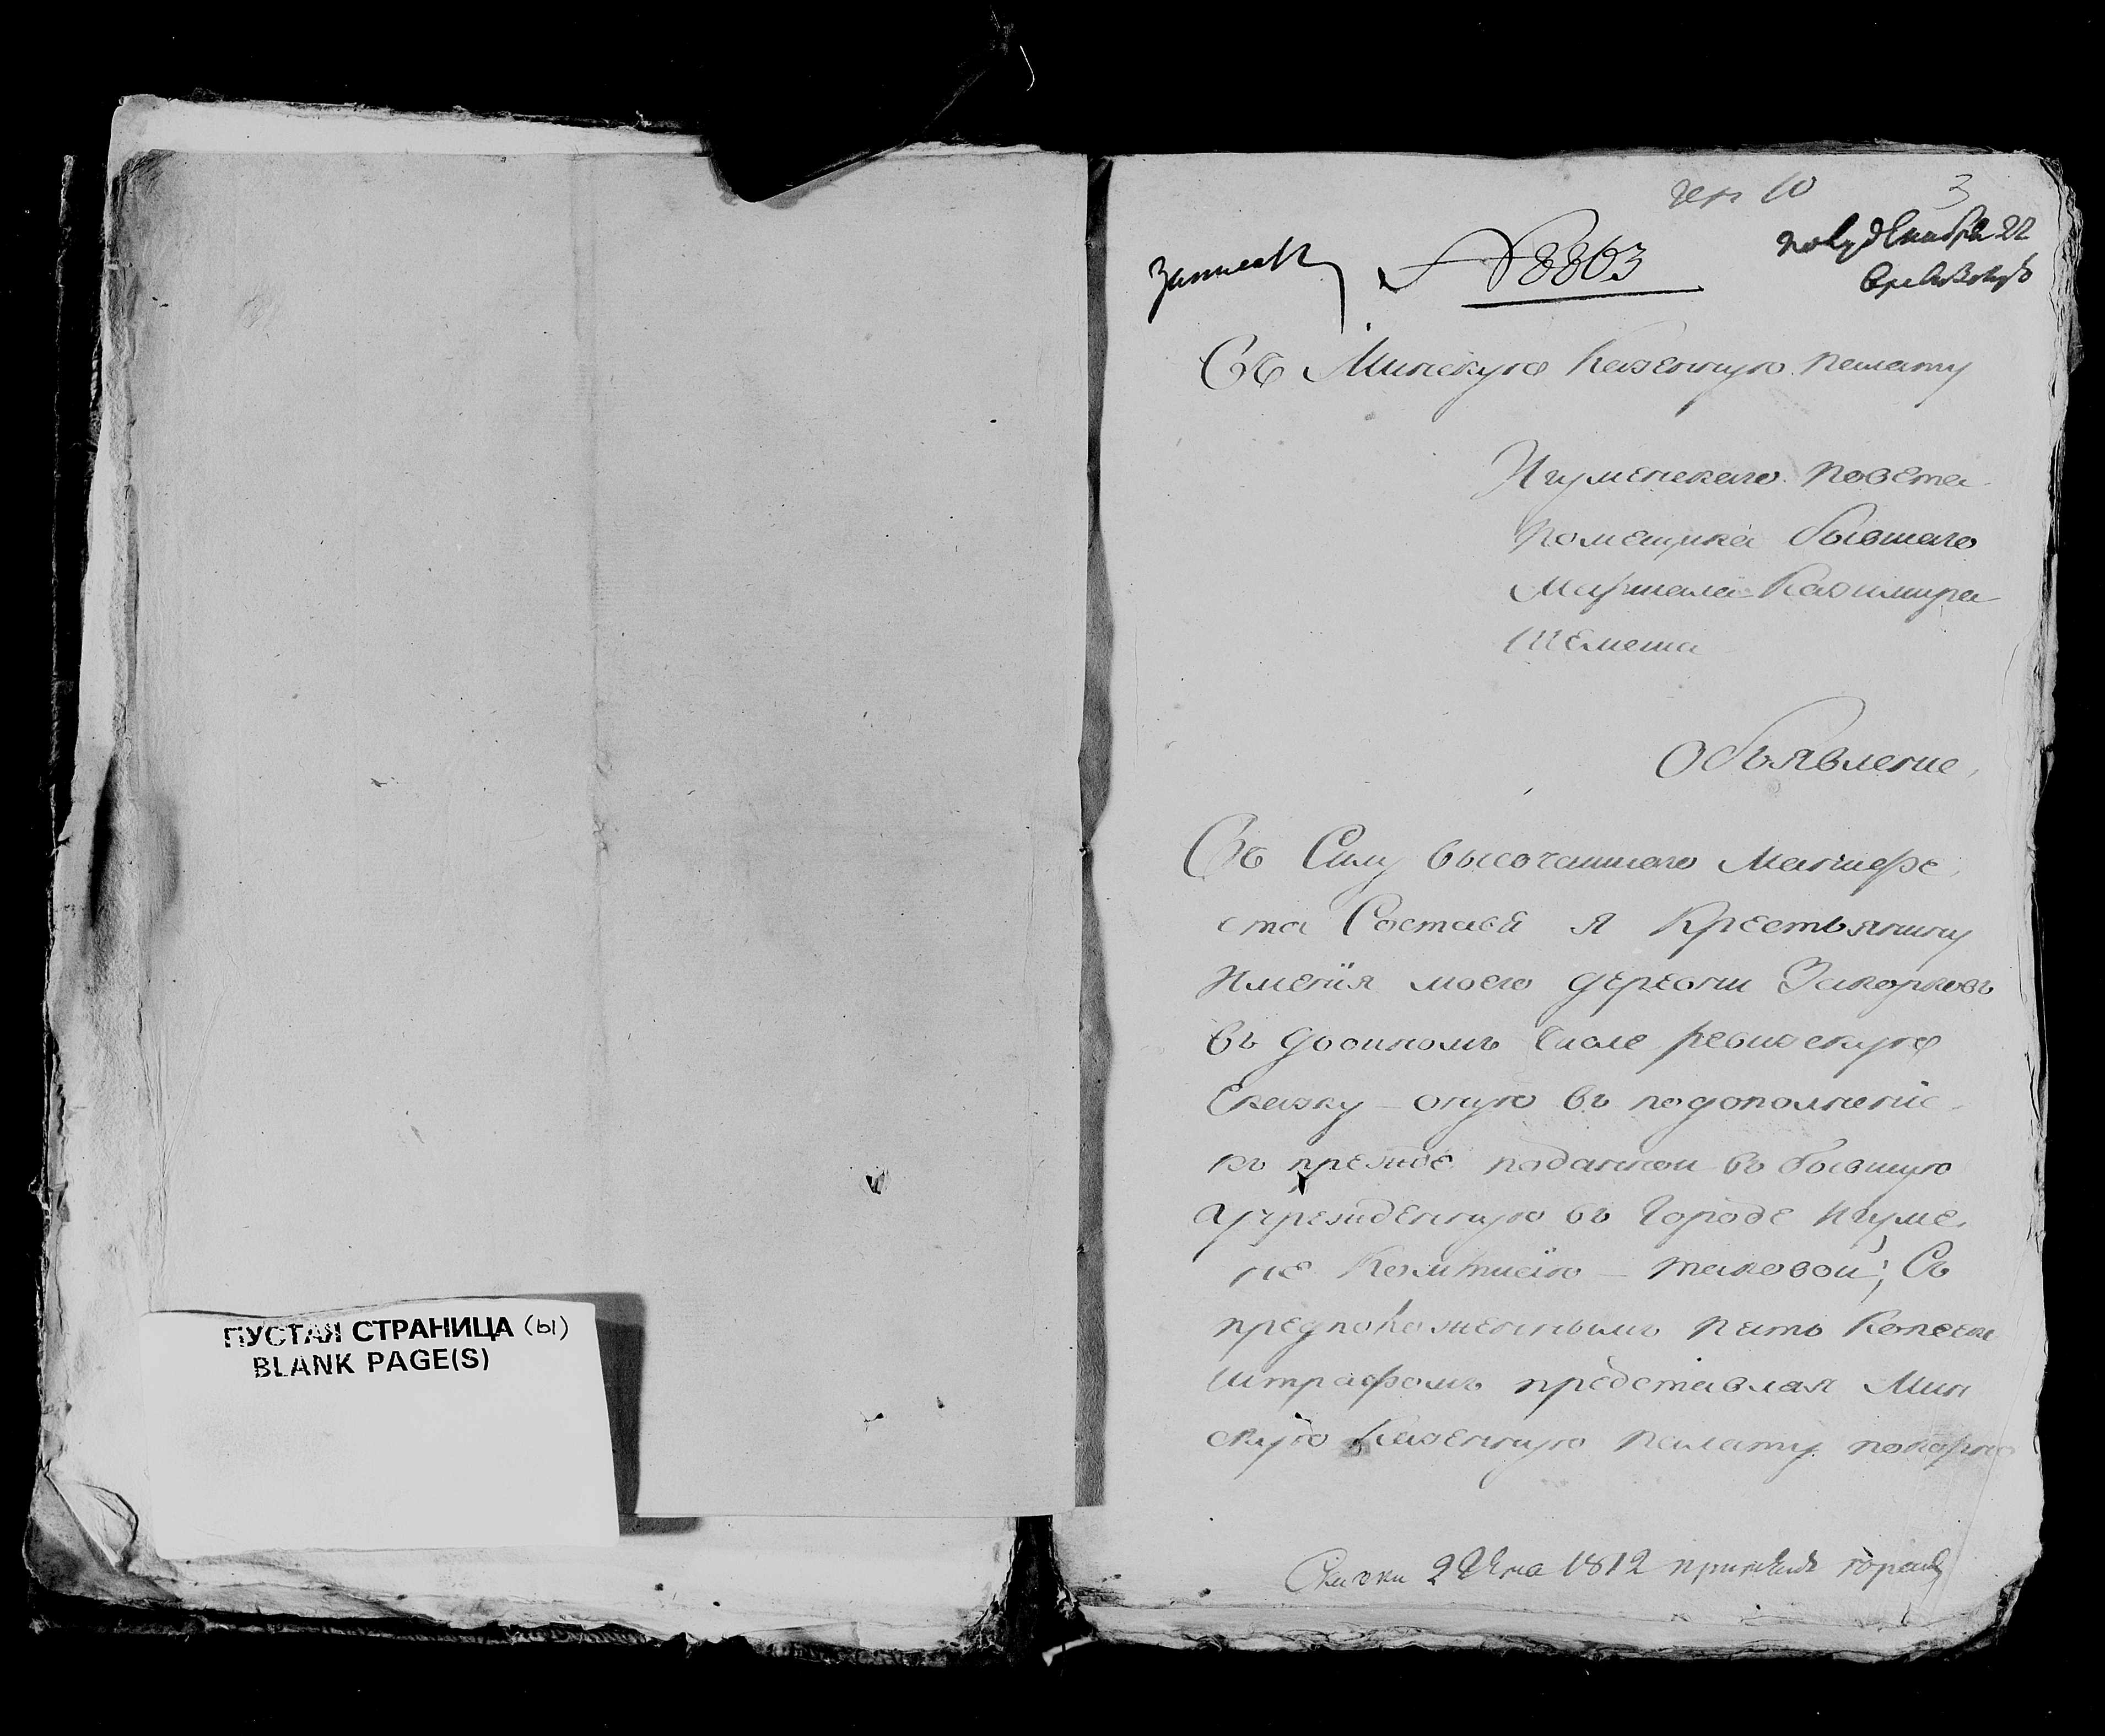 ПУСТАЯ СТРАНИЦА (ы)
BLANK PAGE(S)
3
№ 8863
Въ Минскую Казенную палату
Игуменского повета
помещика бывшаго
Маршала Казимира
Шемета
Объявление,
Въ Силу высочайшаго Манифе
ста Составя я Крестьянину
Имения моего деревни
въ двойномъ числе ревизскую
Сказку оную въ подополнение
къ прежде поданной въ бывшую
учрежденную въ Городе Игуме,
не Коммисию таковой; Съ
предположеннымъ пять Копеек
штрафомъ представляя Мин
скую Казенную палату покорно
Сказки 2 1812